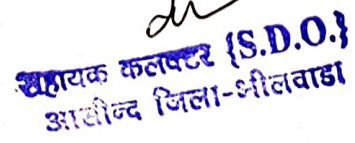 सहायक कलक्टर {S.D.O.}
आसीन्द जिला-भीलवाडा